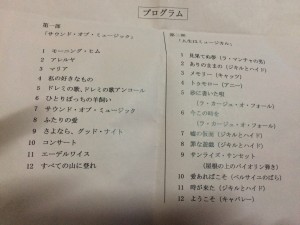 プログラム
第一部
「サウンド・オブ・ミュージック」
1 モーニング・ヒム
2 アレルヤ
3 マリア
4 私の好きなもの
5 ドレミの歌、ドレミの歌アンコール
6 ひとりぼっちの羊飼い
7 サウンド・オブ・ミュージック
8 ふたりの愛
9 さよなら、グッド・ナイト
10 コンサート
11 エーデルワイス
12 すべての山に登れ
第二部
1 見果てぬ夢（ラ・マンチャの男）
2 ありのままの（ジキルとハイド）
3 メモリー（キャッツ）
4 トゥモロー（アニー）
5 砂に書いた唄
（ラ・カージュ・オ・フォール）
6 今この時を
（ラ・カージュ・オ・フォール）
7 嘘の仮面（ジキルとハイド）
8 罪な遊戯（ジキルとハイド）
9 サンライズ・サンセット
（屋根の上のバイオリン弾き）
10 愛あればこそ（ベルサイユのばら）
11 時が来た（ジキルとハイド）
12 ようこそ（キャバレー）